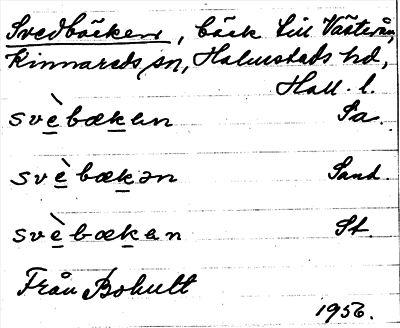 Svedbäcken, bäck till Västerån,
Kinnareds sn, Halmstads hd,
Hall. l.
svèbækan Sa.
svèbækən Sand.
svèbækan St.
Från Bohult
1956.